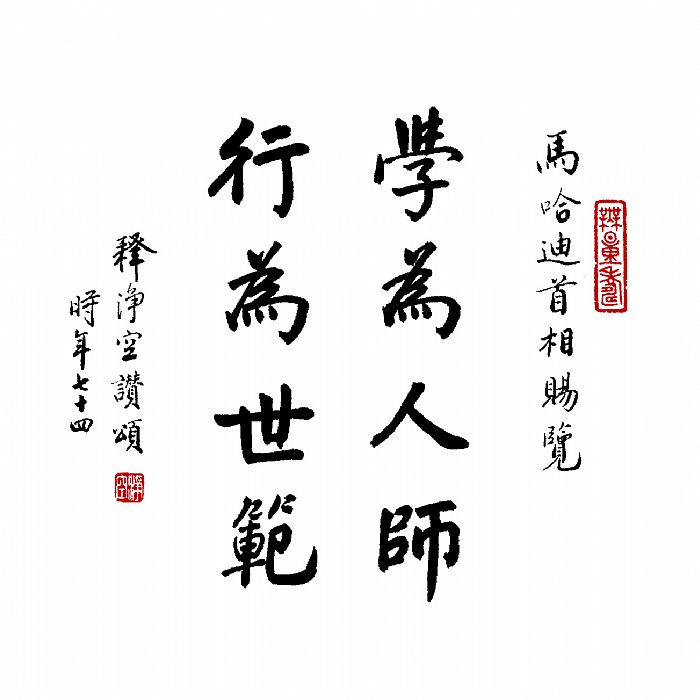 馬哈迪首相賜覽
學為人師
行為世範
释淨空讚頌
時年七十四
淨空